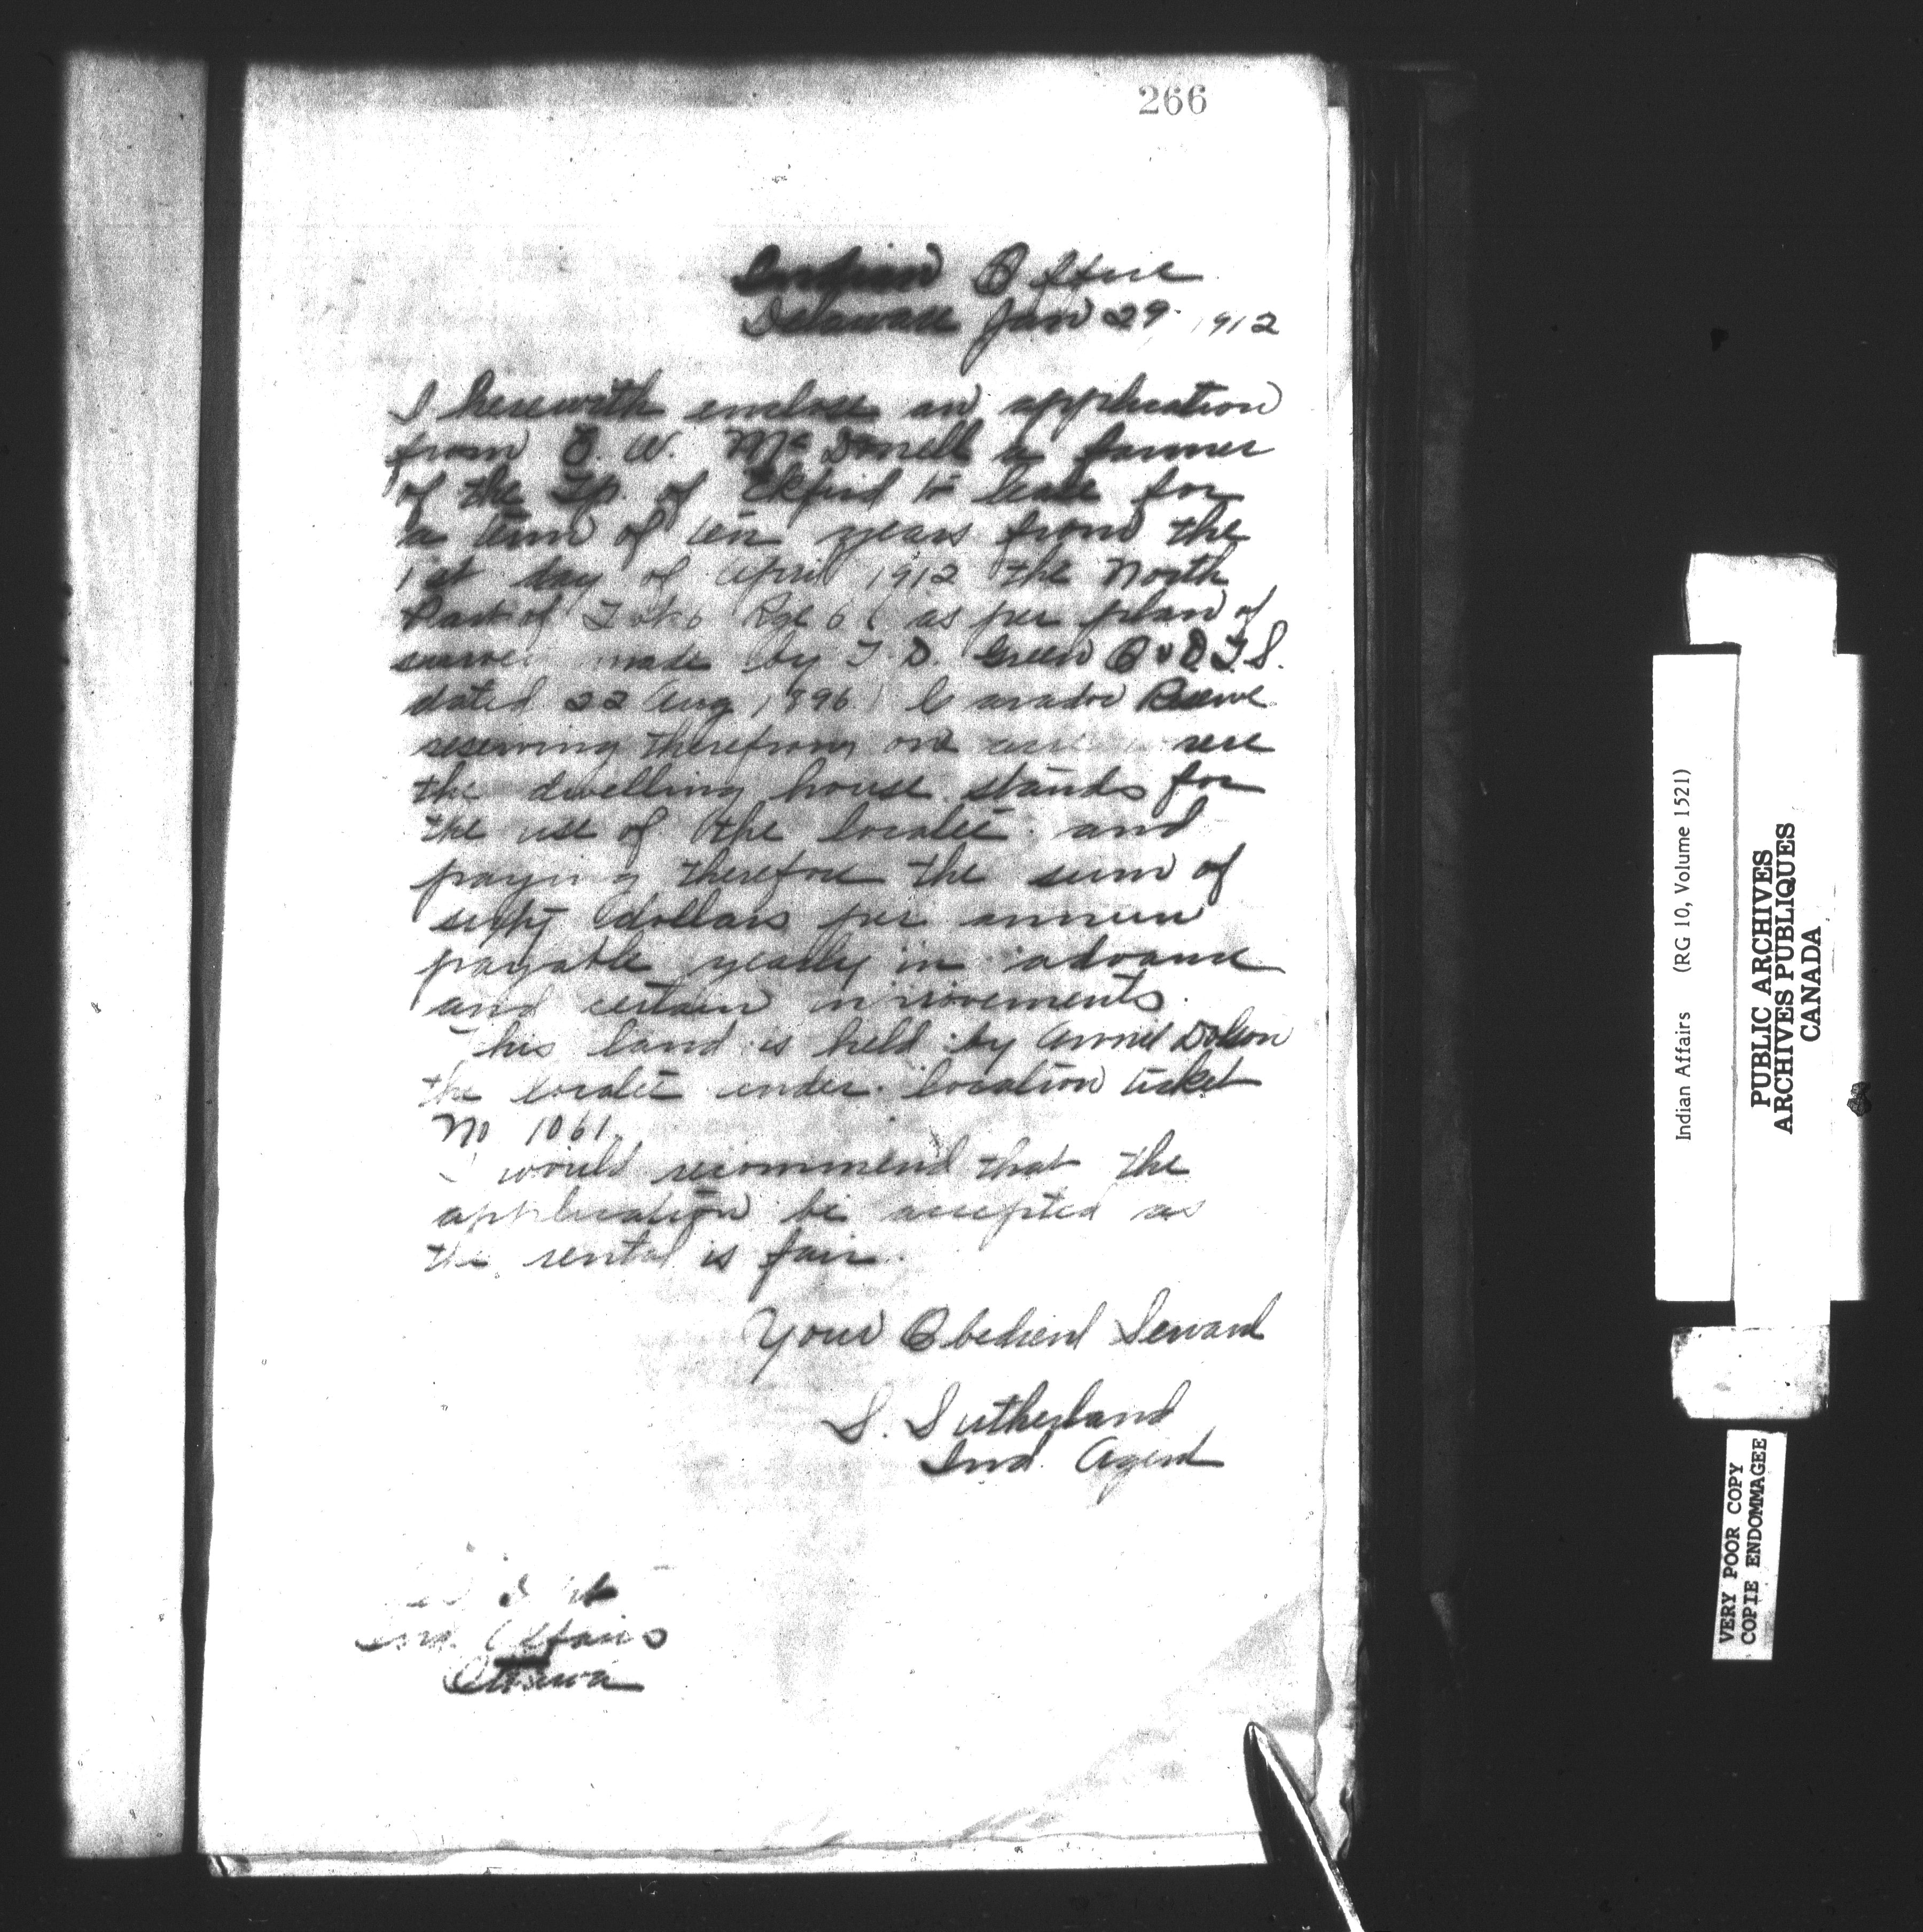 266
Indian Office
Delaware Jan 29 1912
I herewith enclose an application
from W. McDonell a farmer
of the Tp. of Ekfrid to lease for
a term of ten years from the
1st day of April 1912 the North
Part of Lot 6 Rge 6 as per plan of
survey made by T. D. Green O & D. L. S.
dated 22 Aug 1896 Caradoc Reserve
reserving therefrom one acre were
the dwelling house stands for
the use of the locatee and
paying therefore the sum of
dollars per annum
payable yearly in advance
and certain improvements.
This land is held by Annie Dolson
the locatee under location ticket
No 1061.
I would recommend that the
application be accepted as
the rental is fair.
Your Obedient Servant
S. Sutherland
Ind. Agent
Ind. Affairs
Ottawa
Indian Affairs (RG 10, Volume 1521)
PUBLIC ARCHIVES
ARCHIVES PUBLIQUES
CANADA
VERY POOR COPY
COPIE ENDOMMAGEE